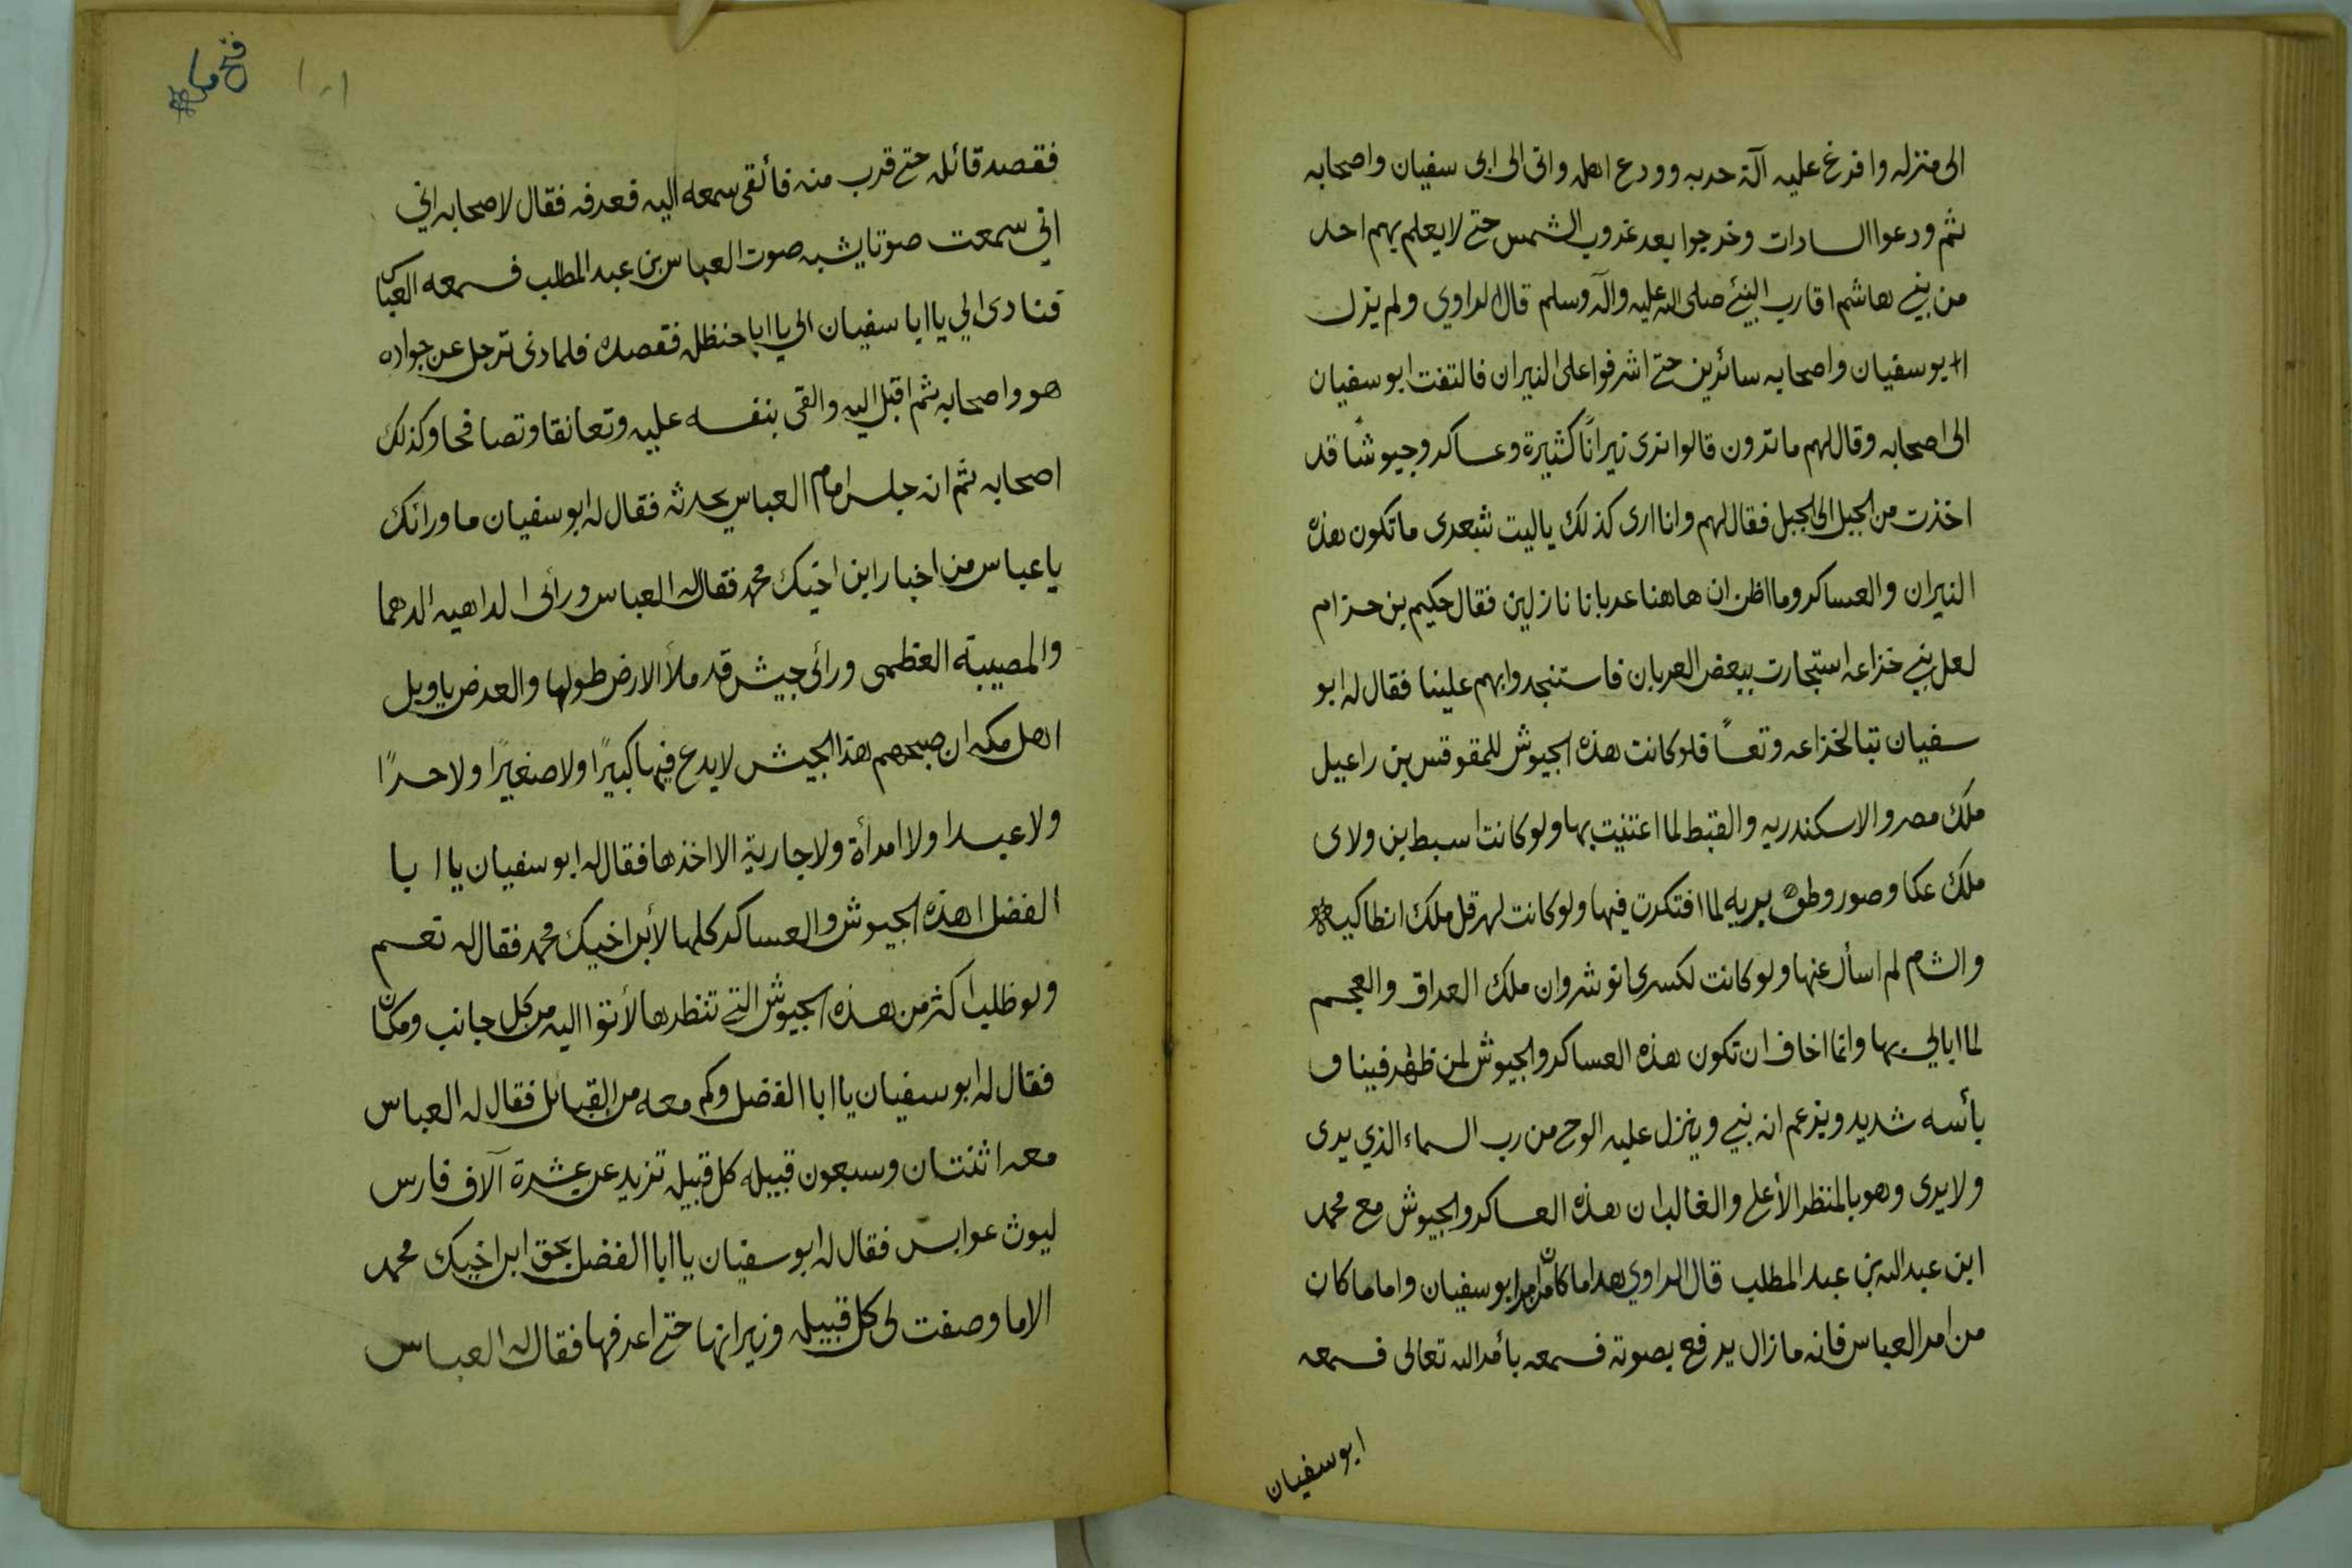 الى منزله وافرغ عليه آلة حربه وودع اهله واتى الى ابى سفيان واصحابه
ثم ودعوا السادات وخرجوا بعد غروب الشمس حتے لا يعلم بهم احد
من بنے هاشم اقارب النبئے صلى الله عليه وآله وسلم قال الراوي ولم يزل
ابو سفيان واصحابه سائرين حتے اشرفوا على النيران فالتفت ابو سفيان
الى اصحابه وقال لهم ما ترون قالوا نرى نيرانًا كثيرة وعساكر وجيوشًا قد
اخذت من الجبل الى الجبل فقال لهم وانا ارى كذلك ياليت شعرى ما تكون هذه
النيران والعساكر وما اظن ان هاهنا عربانا نازلين فقال حكيم بن حزام
لعل بنے خزاعه استجارت ببعض العربان فاستنجدوا بهم علينا فقال له ابو
سفيان تبا لخزاعه وتعسًا فلو كانت هذه الجيوش للمقوقس بن راعيل
ملك مصر والاسكندريه والقبط لما اعتنيت بها ولو كانت اسبط بن ولاى
ملك عكا وصور وطبريه لما افتكرت فيها ولو كانت لهرقل ملك انطاكيه
والشام لم اسأل عنها ولو كانت لكسرى انوشروان ملك العراق والعجم
لما ابالي بها وانما اخاف ان تكون هذه العساكر والجيوش لمن ظهر فينا و
بأسه شديد ويزعم انه نبے وينزل عليه الوحے من رب السماء الذي يرى
ولا يرى وهو بالمنظر الأعلے والغالب ان هذه العساكر والجيوش مع محمد
ابن عبد الله بن عبد المطلب قال الراوي هذا ما كان من امر ابو سفيان واما ما كان
من امر العباس فانه ما زال يرفع بصوته فسمعه بأمر الله تعالى فسمعه
ابو سفيان
فتح مكة
١٠١
فقصد قائله حتے قرب منه فألقى سمعه اليه فعرفه فقال لاصحابه اني
اني سمعت صوتا يشبه صوت العباس بن عبد المطلب فسمعه العباس
فنادى الي يا ابا سفيان الي يا ابا حنظله فقصده فلما دنى ترجل عن جواده
هو واصحابه ثم اقبل اليه والقى بنفسه عليه وتعانقا وتصافحا وكذلك
اصحابه ثم انه جلس امام العباس يحدثه فقال له ابو سفيان ما ورائك
يا عباس من اخبار ابن اخيك محمد فقال له العباس ورائى الداهيه الدهما
والمصيبة العظمى ورائى جيش قد ملأ الارض طولها والعرض يا ويل
اهل مكه ان صبحهم هذا الجيش لا يدع فيها كبيرًا ولا صغيرًا ولا حرًا
ولا عبدا ولا امرأة ولا جارية الا اخذها فقال له ابو سفيان يا ابا
الفضل اهذه الجيوش والعساكر كلها لأبن اخيك محمد فقال له نعم
ولو طلب اكثر من هذه الجيوش التے تنظرها لأتوا اليه من كل جانب ومكان
فقال له ابو سفيان يا ابا الفضل وكم معه من القبائل فقال له العباس
معه اثنتان وسبعون قبيله كل قبيله تزيد عن عشرة آلاف فارس
ليوث عوابس فقال له ابو سفيان يا ابا الفضل بحق ابن اخيك محمد
الا ما وصفت لى كل قبيله ونيرانها حتے اعرفها فقال له العباس